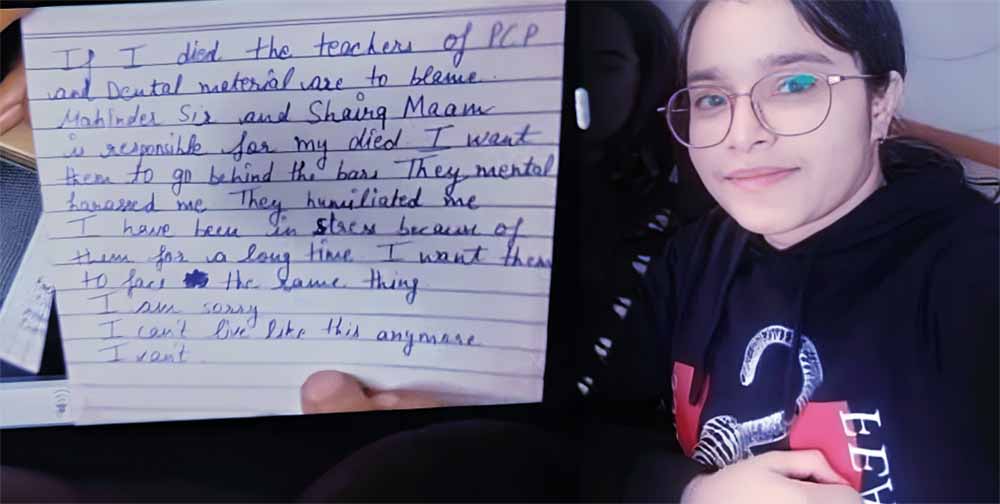 If I died the teachers of PCP
and Dental material are to blame.
Mahinder Sir and Shairg Maam
is responsible for my died I want
them to go behind the bars They mental
harassed me They humiliated me
I have been in stress because of
them for a long time I want them
to face the same thing
I am sorry
I can't live like this anymore
I can't